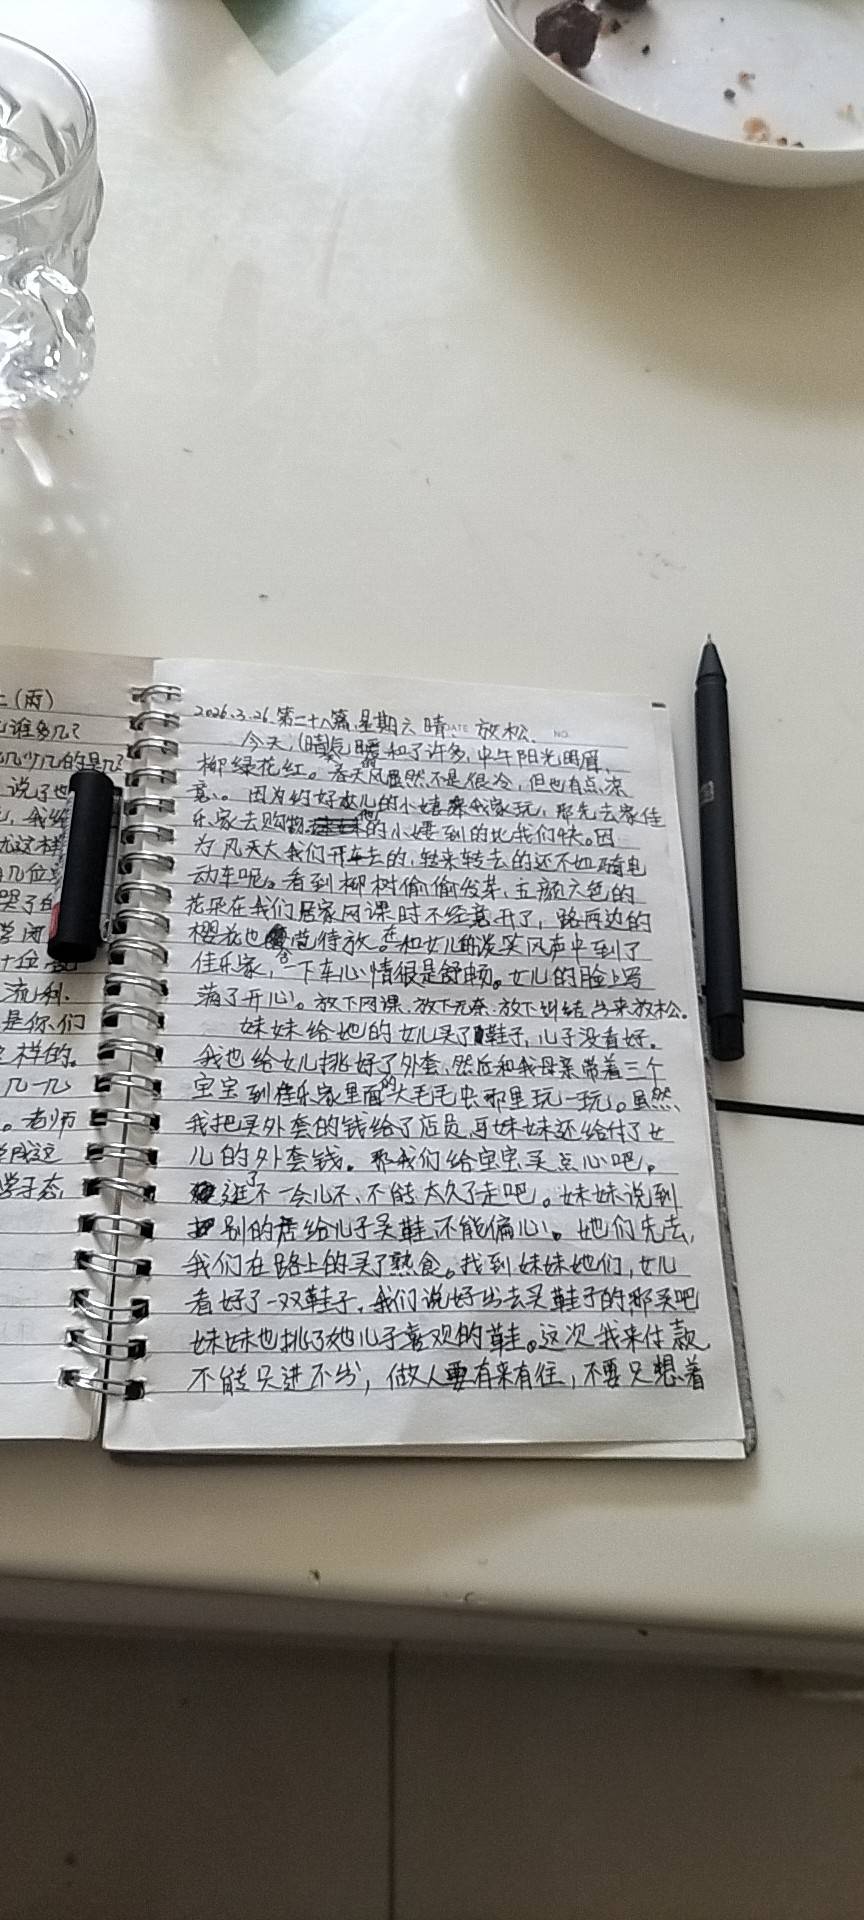 上(雨)
谁多几?
几少几的是几?
说了也
我给
就这样
几位
哭了
流利.
是你们
样的.
几一几
。老师
学习态,
2026.3.26.第二十八篇.星期六 晴 DATE 放松. NO.
今天,(晴)气暖和了许多,中午阳光明眉,
柳绿花红。春天的风虽然不是很冷,但也有点凉
意。因为约好女儿的小姨来我家玩,那先去家佳
乐家去购物.他的小姨到的比我们快。因
为风天大我们开车去的,转来转去的还不如骑电
动车呢。看到柳树偷偷发芽,五颜六色的
花朵在我们居家网课时不经意开了,路两边的
樱花也含苞待放。在和女儿的谈笑风声中到了
佳乐家,一下车心情很是舒畅。女儿的脸上写
满了开心。放下网课.放下无奈.放下纠结,出来放松。
妹妹给她的女儿买了鞋子,儿子没看好。
我也给女儿挑好了外套,然后和我母亲带着三个
宝宝到佳乐家里面的大毛毛虫那里玩一玩。虽然,
我把买外套的钱给了店员,可妹妹还给付了女
儿的外套钱。那我们给宝宝买点心吧。
逛了不一会儿不、不能太久了走吧。妹妹说到
别的店给儿子买鞋,不能偏心。她们先去,
我们在路上的买了熟食。找到妹妹她们,女儿
看好了一双鞋子,我们说好出去买鞋子的那买吧
妹妹也挑了她儿子喜欢的鞋。这次我来付款,
不能只进不出,做人要有来有往,不要只想着